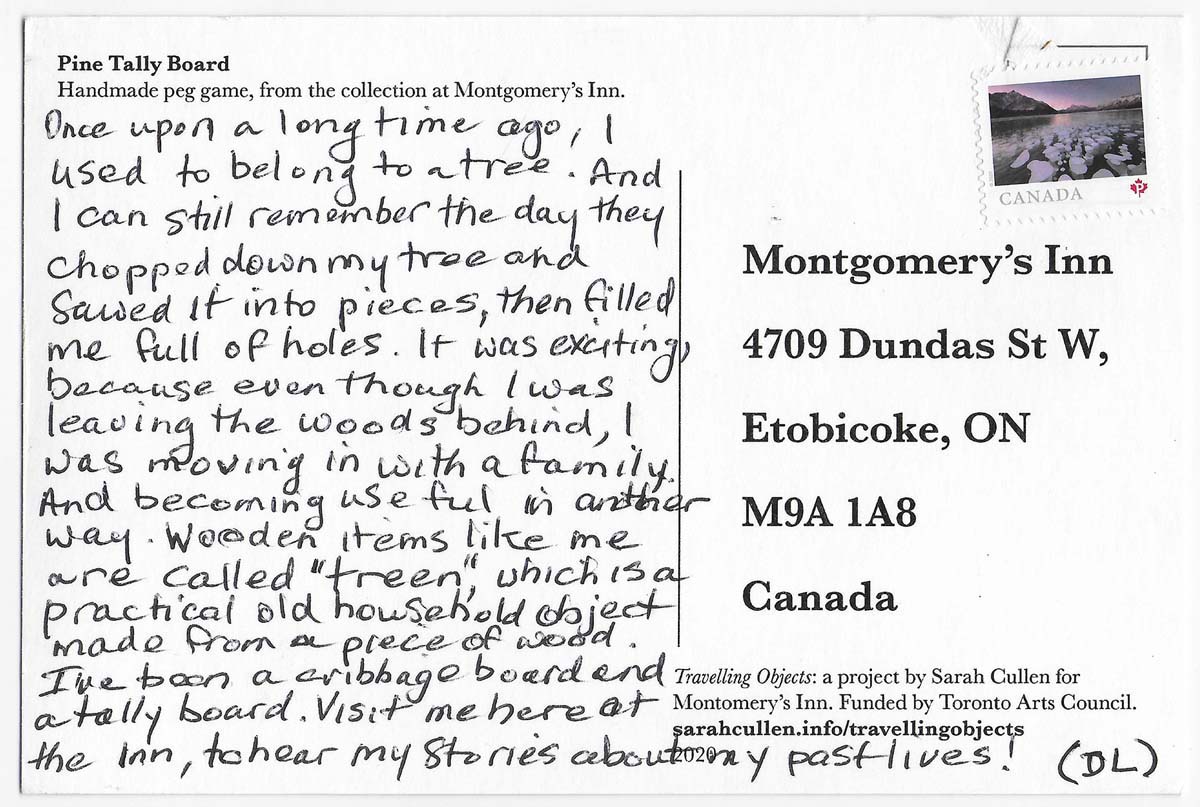 Pine Tally Board
Handmade peg game, from the collection at Montgomery's Inn.
Once upon a long time ago, I
used to belong to a tree. And
I can still remember the day they
chopped down my tree and
sawed it into pieces, then filled
me full of holes. It was exciting,
because even though I was
leaving the woods behind, I
was moving in with a family.
And becoming useful in another
way. Wooden items like me
are called "treen", which is a
practical old household object
made from a piece of wood.
I've been a cribbage board and
a tally board. Visit me here at
the Inn, to hear my stories about my past lives! (DL)
CANADA
P
Montgomery's Inn
4709 Dundas St W,
Etobicoke, ON
M9A 1A8
Canada
Travelling Objects: a project by Sarah Cullen for
Montomery's Inn. Funded by Toronto Arts Council.
sarahcullen.info/travellingobjects
2020